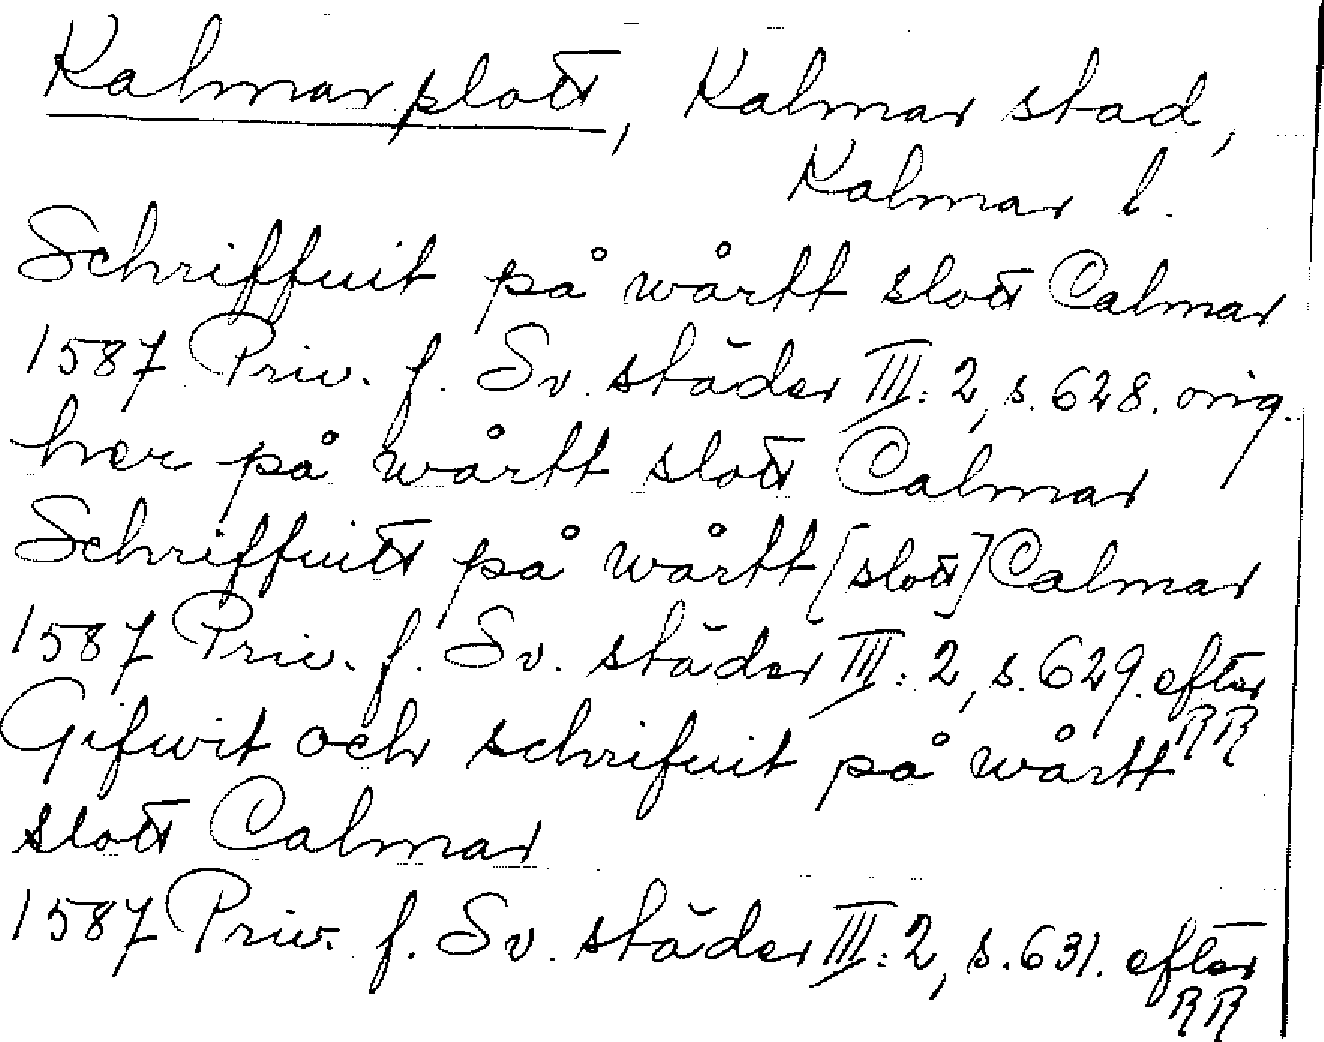 Kalmar slott, Kalmar stad,
Kalmar l.
Schriffuit på wårtt slott Calmar
1587 Priv. f. Sv. städer III:2, s. 628. orig.
her på wårtt slott Calmar
Schriffuitt på wårtt [slott] Calmar
1587 Priv. f. Sv. städer III:2, s. 629. efter
RR
Gifwit och schrifuit på wårtt
slott Calmar
1587 Priv. f. Sv. städer III:2, s. 631. efter
RR